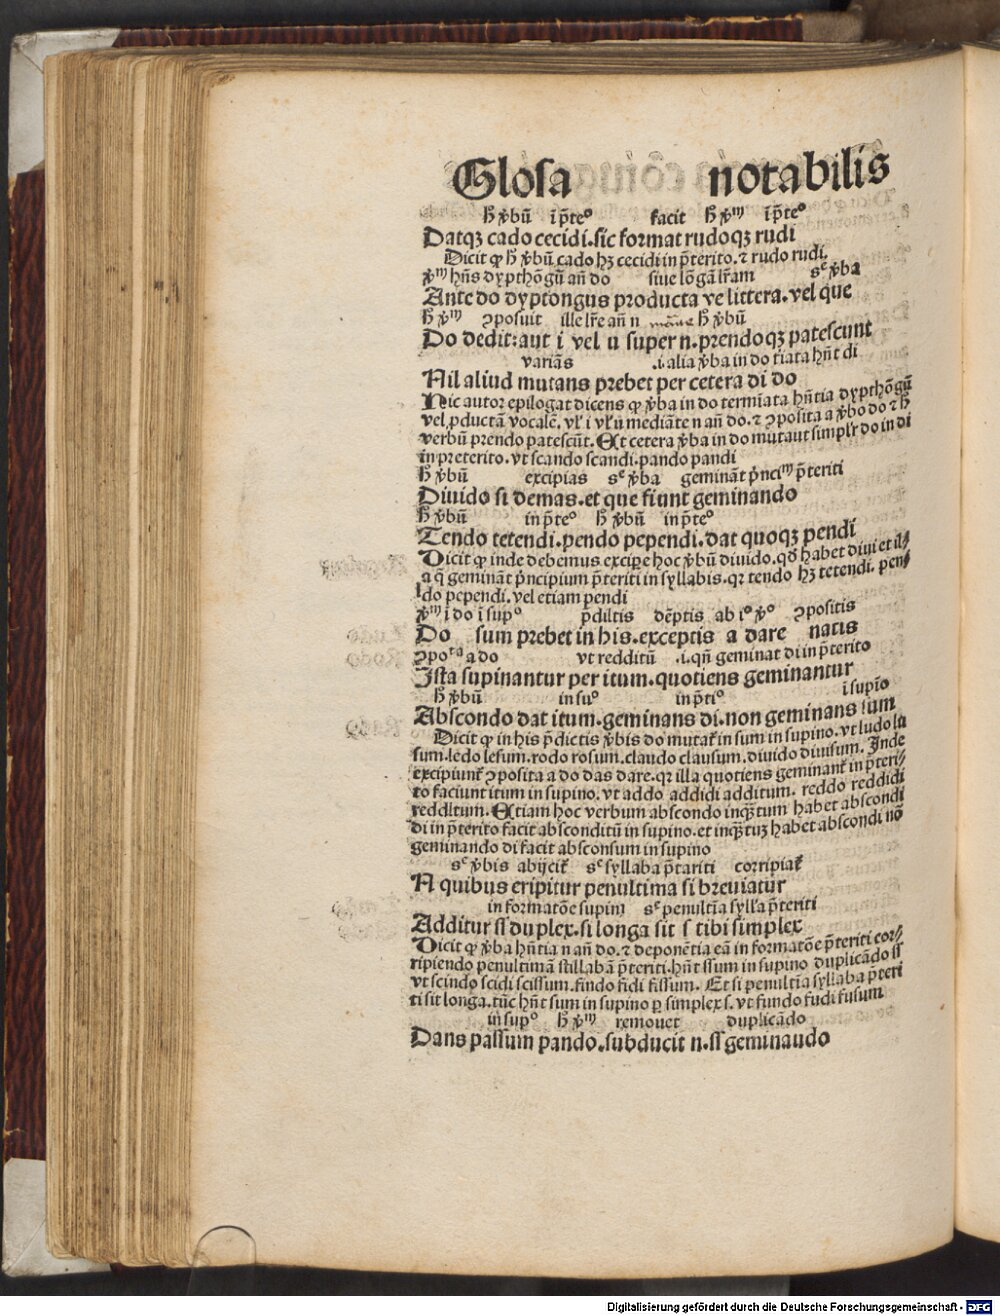 Glosa notabilis
h̄ v̄bū ip̄te⁰ facit h̄ v̄ᵐ ip̄te⁰
Datqꝫ cado cecidi.sic format rudoqꝫ rudi
Dicit ꝙ h̄ v̄bū cado hꝫ cecidi in p̄terito.⁊ rudo rudi.
v̄ᵐ hn̄s dypthōgū an̄ do siue lōgā lr̄am sᵉ v̄ba
Ante do dyptongus producta ve littera.vel que
h̄ v̄ᵐ ꝯposuit ille lr̄e an̄ n h̄ v̄bū
Do dedit:aut i vel u super n.prendoqꝫ patescunt
variās .i.alia v̄ba in do tīata hn̄t di
Nil aliud mutans prebet per cetera di do
Hic autor epilogat dicens ꝙ v̄ba in do termīata hn̄tia dypthōgū
vel ꝓductā vocalē.vl̄ i vl̄ u mediāte n an̄ do.⁊ ꝯposita a v̄bo do ⁊ h̄
verbū prendo patescūt.Et cetera v̄ba in do mutaut simplr̄ do in di
in preterito.vt scando scandi.pando pandi
h̄ v̄bū excipias sᵉ v̄ba gemināt p̄nciᵐ p̄teriti
Diuido si demas.et que fiunt geminando
h̄ v̄bū in p̄te⁰ h̄ v̄bū in p̄te⁰
Tendo tetendi.pendo pependi.dat quoqꝫ pendi
Dicit ꝙ inde debemus excipe hoc v̄bū diuido.qd̄ habet diui et il⸗
a q̄ gemināt p̄ncipium p̄teriti in syllabis.qꝛ tendo hꝫ tetendi.pen⸗
do pependi.vel etiam pendi
v̄ᵐ i do i sup⁰ p̄diltis dēptis ab i⁰ v̄⁰ ꝯpositis
Do sum prebet in his.exceptis a dare natis
ꝯpoᵗᵃ a do vt redditū .i.qn̄ geminat di in p̄terito
Ista supinantur per itum.quotiens geminantur
h̄ v̄bū in su⁰ in p̄ti⁰ i supīo
Abscondo dat itum.geminans di.non geminans sum
Dicit ꝙ in his p̄dictis v̄bis do mutat᷑ in sum in supino.vt ludo lu
sum.ledo lesum.rodo rosum.claudo clausum.diuido diuisum. Inde
excipiunt᷑ ꝯposita a do das dare.qꝛ illa quotiens geminant᷑ in p̄teri⸗
to faciunt itum in supino.vt addo addidi additum. reddo reddidi
redditum.Etiam hoc verbum abscondo inqꝫtum habet abscondi
di in p̄terito facit absconditū in supino.et inqꝫtuꝫ habet abscondi nō
geminando di facit absconsum in supino
sᵉ v̄bis abijcit᷑ sᵉ syllaba p̄tariti corripiat᷑
A quibus eripitur penultima si breuiatur
in formatōe supini sᵉ penultīa sylla p̄teriti
Additur ss duplex.si longa sit s tibi simplex
Dicit ꝙ v̄ba hn̄tia n an̄ do.⁊ deponētia eā in formatōe p̄teriti cor⸗
ripiendo penultimā stillabā p̄teriti.hn̄t ssum in supino duplicādo ss
vt scindo scidi scissum.findo fidi fissum. Et si penultīa syllaba p̄teri
ti sit longa.tūc hn̄t sum in supino ꝑ simplex s.vt fundo fudi fusum
in sup⁰ h̄ v̄ᵐ remouet duplicādo
Dans passum pando.subducit n.ss geminaudo
Digitalisierung gefördert durch die Deutsche Forschungsgemeinschaft - DFG